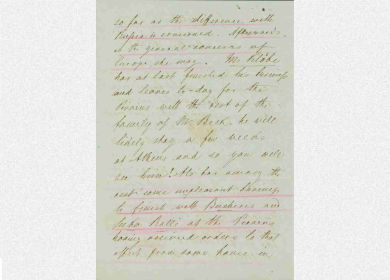 so far as the difference with
Russia is concerned. Afterwards
in the general concerns of
Europe she may. Mr
has at last finished his
and leaves to-day for the
Piraeus with the rest of the
family of Mr he will
likely stay a few weeks
at Athens and so you will
see him! He has among the
rest some unpleasant business
to finish with and
Ralli at the Piraeus
having received orders to that
effect from some house in